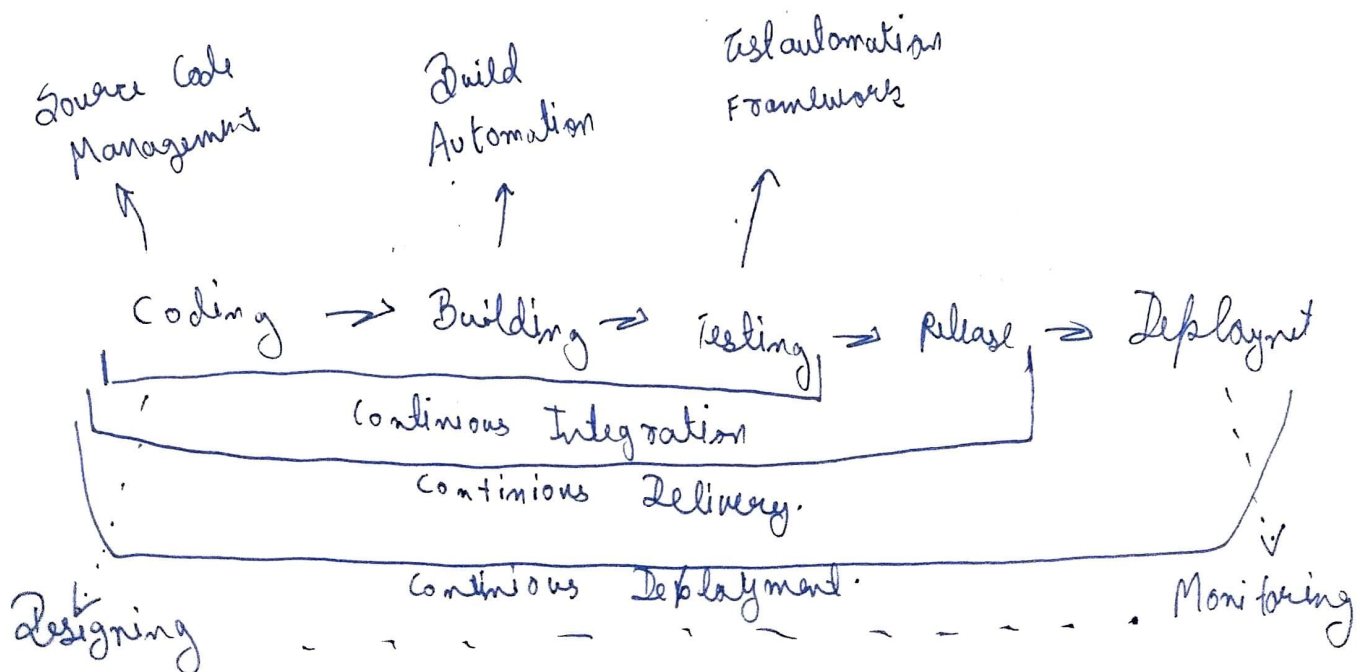 Source Code
Management
Build
Automation
Testautomation
Framework
Coding → Building → Testing → Release → Deploynet
Continious Integration
Continious Delivery.
Continious Deployment.
Designing
Monitoring